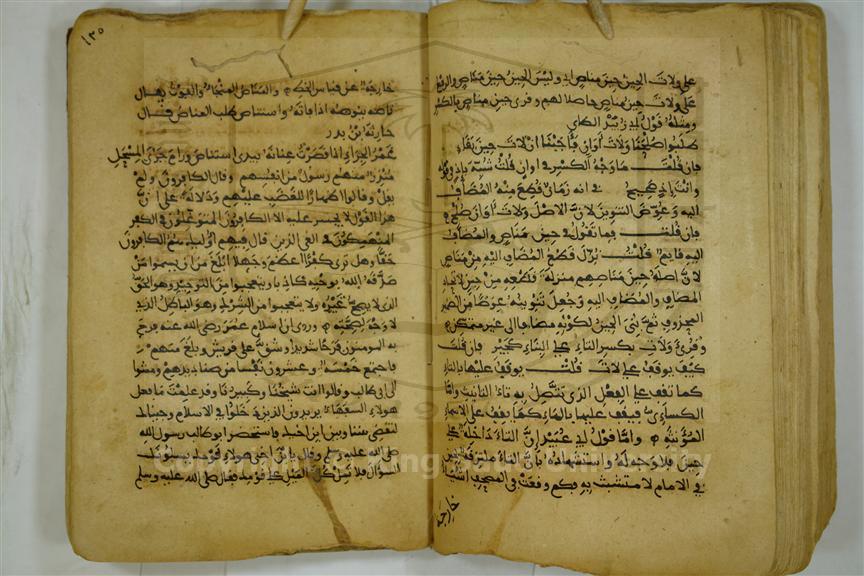 على ولات الحينُ حينَ مناصٍ اي وليس الحينُ حينَ مَنَاصٍ والرفعُ
على ولات حينُ مناصٍ حاصلا لهم وقرئ حينِ مناصٍ بالكسر
ومثله قول ابي زبيد الطائي
طلبوا صُلحَنا ولاتَ أوانٍ فأجبْنا ان لاتَ حينَ بَقاءِ
فإن قلت ما وجْهُ الكسرِ في أوانٍ قلتُ شُبِّهَ باذٍ في قوله
وانتَ إذٍ صحيحُ في انه زمان قطع منه المضاف
اليه وعُوِّض التنوين لانّ الاصل ولاتَ أوانَ صلحٍ
فإن قلت فما تقول في حينِ مناصٍ والمضاف
اليه قائم قلتُ نُزِّل قطع المضاف اليه من مناص
لانّ اصله حينَ مناصهم منزلة قطعه من حين لاتحاد
المضاف والمضاف اليه وجُعل تنوينه عوضًا من الضمير
المحذوف ثم بُني الحين لكونه مضافا الى غير متمكن
وقرئ ولاتِ بكسر التاء على البناء كجير فإن قلت
كيف يوقف على لات قلت يوقف عليها بالتاء
كما تقف على الفعل الذي يتصل به تاء التأنيث وامّا
الكسائي فيقف عليها بالهاء كما يقف على الاسماء
المؤنثة وامّا قول ابي عبيد إنّ التاء داخلة على
حين فلا وجه له واستشهاده بأنّ التاء ملتزقة بحين
في الامام لا متشبث به فكم وقعت في المصحف اشياء
خارجة
١٣٥
خارجة عن قياس الخط والمَنَاص المنجا والفوت يقال
ناصه ينوصه اذا فاته واستناص طلب المناص قال
حارثة بن بدر
غمرُ الجِراءِ اذا قصرتُ عنانَه بيدي استناص ورام جري المِسْحَلِ
منذر منهم رسول من انفسهم وقال الكافرون ولم
يقل وقالوا اظهارًا للغضب عليهم ودلالة على انّ
هذا القول لا يجسر عليه الا الكافرون المتوغلون في الكفر
المنهمكون في الغي الذين قال فيهم اولئك هم الكافرون
حقًّا وهل ترى كفرًا اعظم وجهلا ابلغ من ان يسموا من
صدّقه الله بوحيه كاذبا ويتعجبوا من التوحيد وهو الحق
الذي لا يصح غيره ولا يتعجبوا من الشرك وهو الباطل الذي
لا وجه لصحته وروي ان اسلام عمر رضي الله عنه فرح
به المؤمنون فرحًا شديدا وشقّ على قريش وبلغ منهم
فاجتمع خمسة وعشرون نفسًا من صناديدهم ومشوا
الى ابي طالب وقالوا انت شيخنا وكبيرنا وقد علمت ما فعل
هؤلاء السفهاء يريدون الذين دخلوا في الاسلام وجئناك
لتقضي بيننا وبين ابن اخيك فاستحضر ابو طالب رسول الله
صلى الله عليه وسلم وقال يا ابن اخي هؤلاء قومك يسئلونك
السؤال فلا تمل كل الميل على قومك فقال صلى الله عليه وسلم